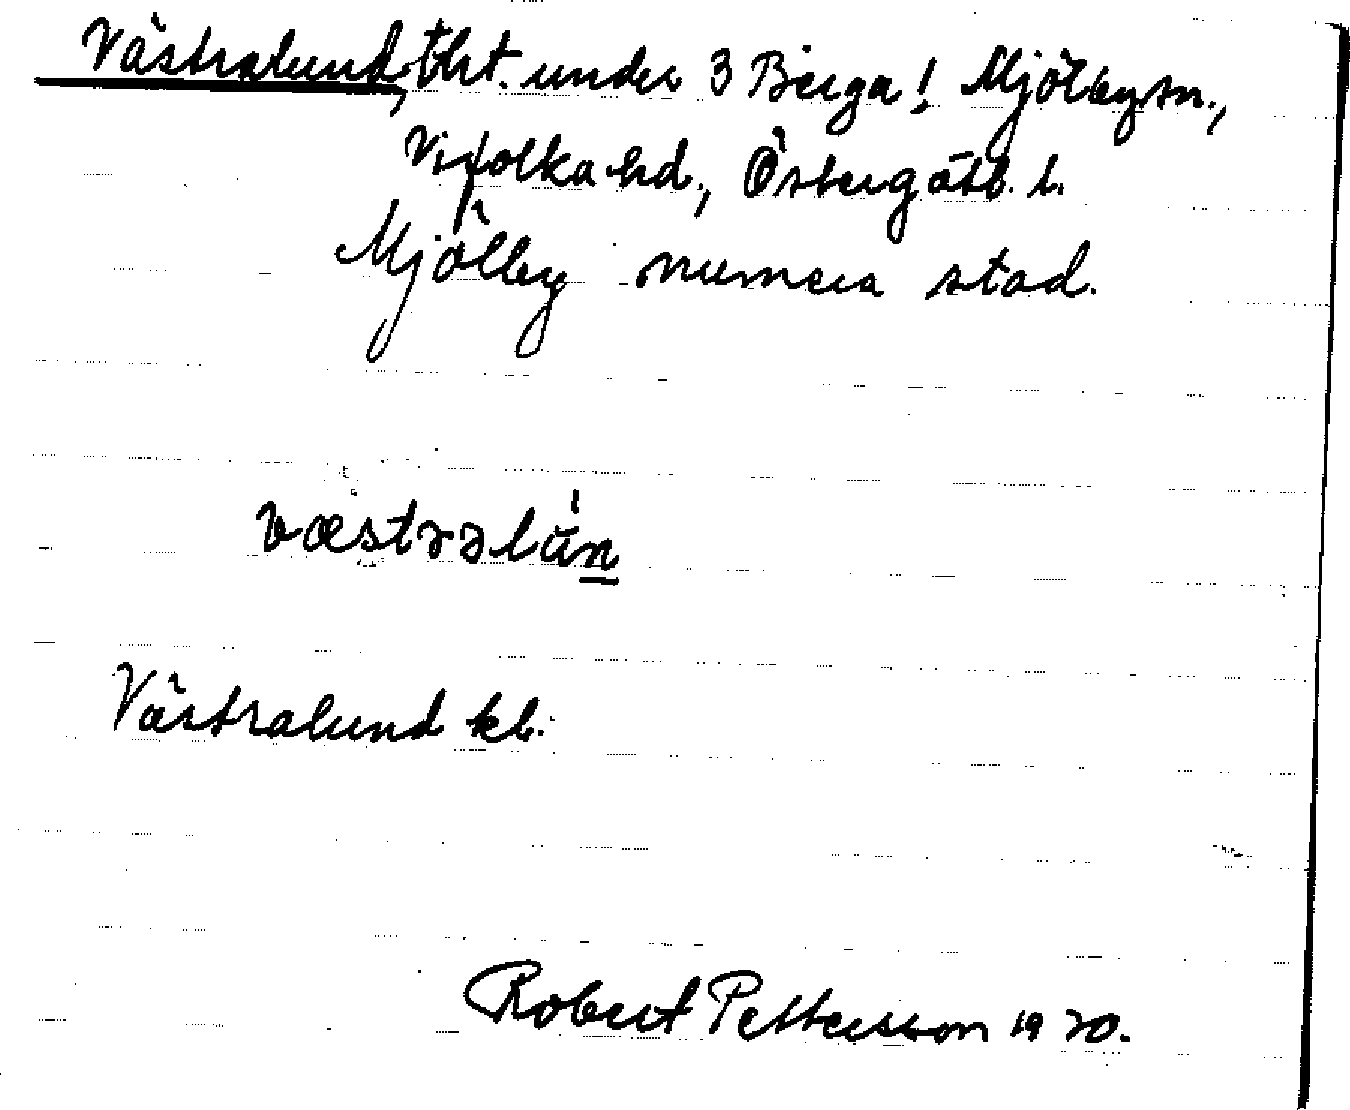 Västralund, tht. under 3 Berga! Mjölby sn.,
Vifolka hd., Östergötl. l.
Mjölby numera stad.
væstrəlún
Västralund kl.
Robert Pettersson 1920.